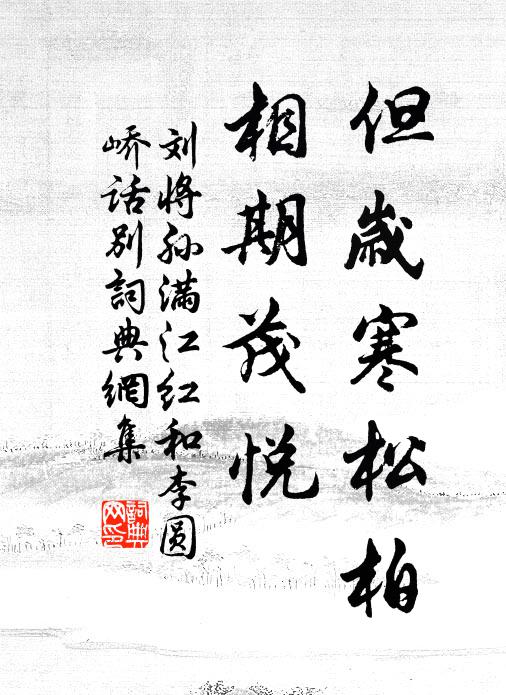 但岁寒松柏
相期茂悦
刘将孙满江红和李圆
峤话别词典網集
詞典
网印